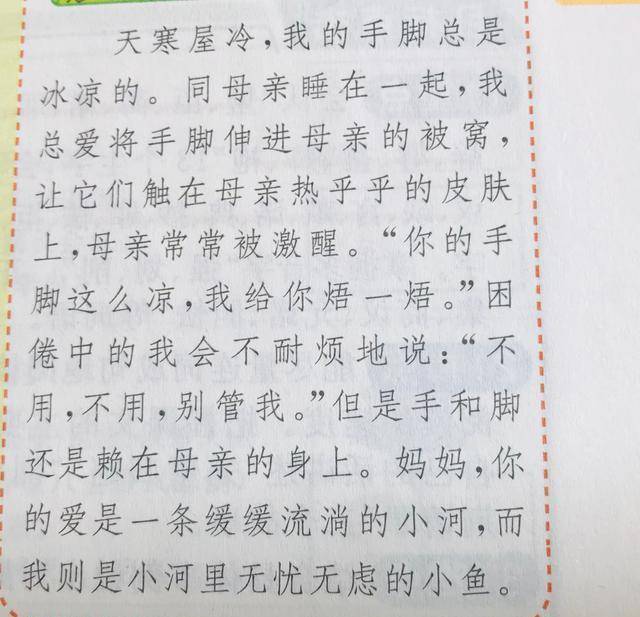 天寒屋冷，我的手脚总是
冰凉的。同母亲睡在一起，我
总爱将手脚伸进母亲的被窝，
让它们触在母亲热乎乎的皮肤
上，母亲常常被激醒。“你的手
脚这么凉，我给你焐一焐。”困
倦中的我会不耐烦地说：“不
用，不用，别管我。”但是手和脚
还是赖在母亲的身上。妈妈，你
的爱是一条缓缓流淌的小河，而
我则是小河里无忧无虑的小鱼。